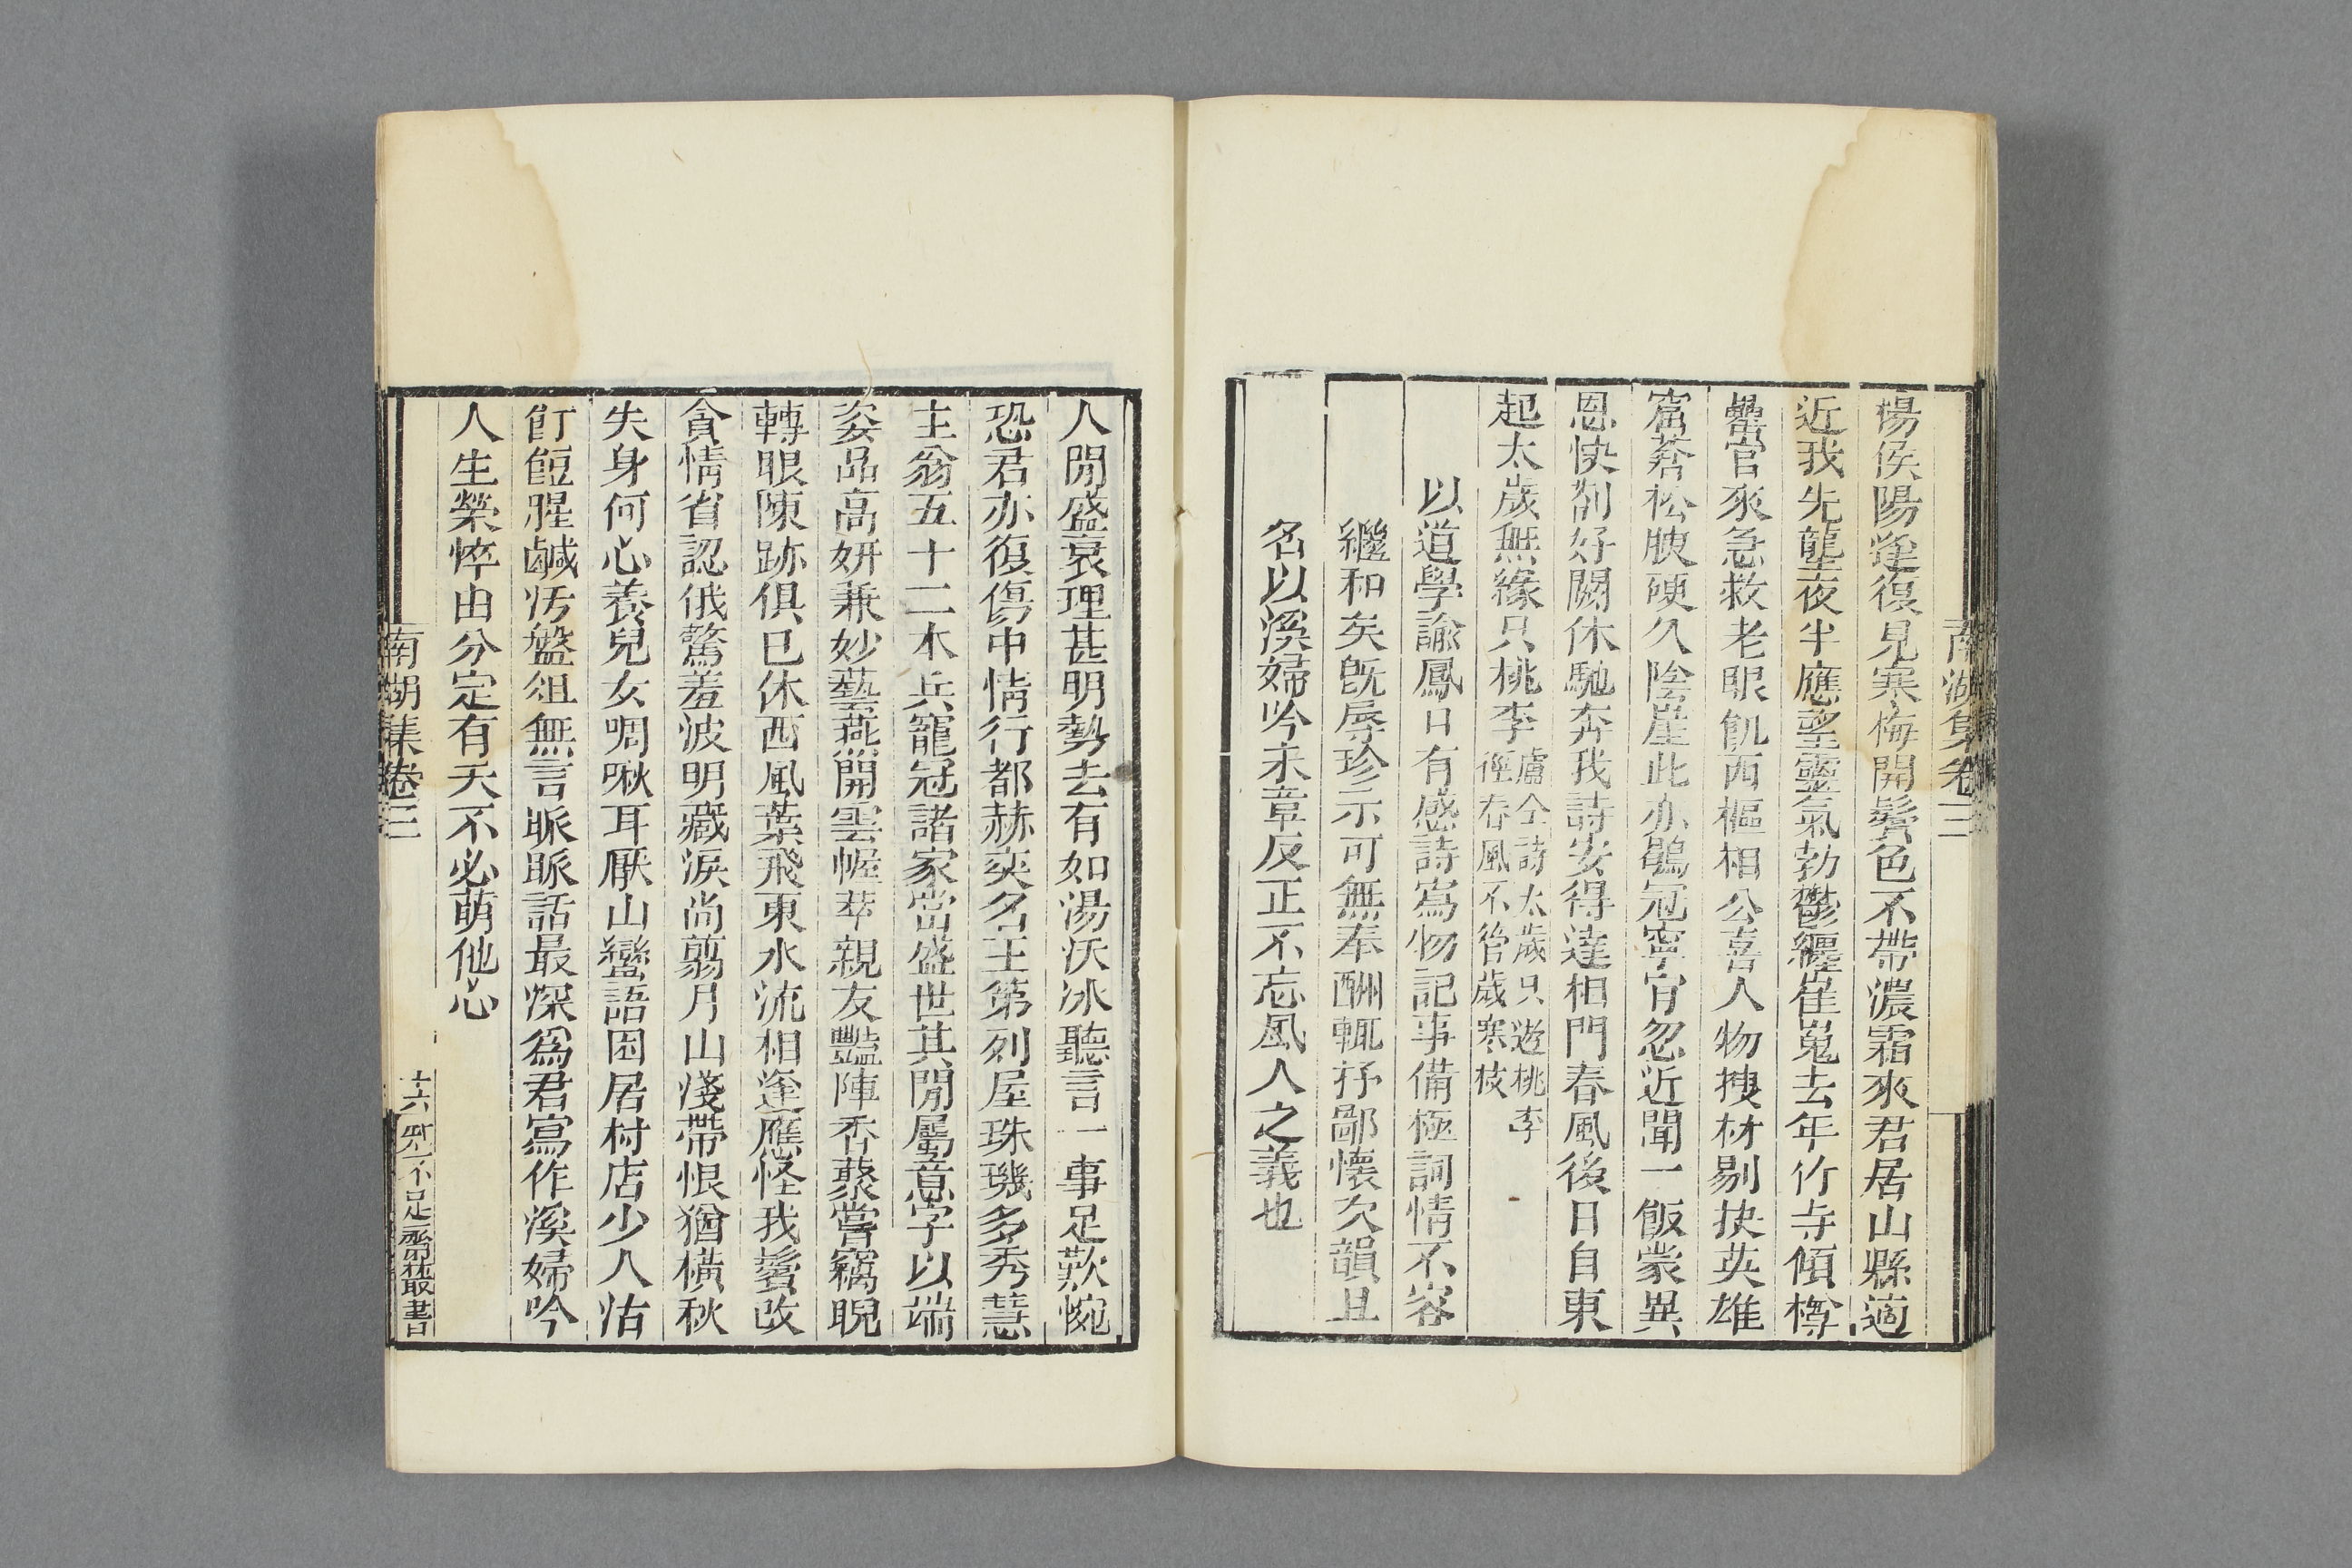 南湖集卷三
楊侯陽逢復見寒梅開鬢色不帶濃霜來君居山縣適
近我先壟夜半應望靈氣勃鬱纏崔嵬去年竹寺傾樽
罍官來急救老眼飢西樞相公喜人物搜材剔抉英雄
窟蒼松腴硬久陰崖此亦鶡冠寧宵忽近聞一飯蒙異
恩快劄好闕休馳奔我詩安得達相門春風後日自東
起太歲無緣只桃李
盧仝詩太歲只遊桃李
徑春風不管歲寒枝
以道學諭鳳日有感詩寫物記事備極詞情不容
繼和矣旣辱珍示可無奉酬輒抒鄙懷欠韻且
名以溪婦吟末章反正不忘風人之義也
人閒盛衰理甚明勢去有如湯沃冰聽言一事足歎惋
恐君亦復傷中情行都赫奕名王第列屋珠璣多秀慧
主翁五十二木兵寵冠諸家當盛世其閒屬意字以端
姿品高妍兼妙藝燕開雲幄萃親友豔陣香藂嘗竊睨
轉眼陳跡俱已休西風葉飛東水流相逢應怪我鬢改
貪情省認俄驚羞波明藏淚尚翦月山淺帶恨猶橫秋
失身何心養兒女啁啾耳厭山蠻語困居村店少人沽
飣餖腥鹹汚盤俎無言脈脈話最深爲君寫作溪婦吟
人生榮悴由分定有天不必萌他心
南湖集卷三
十六
知不足齋叢書